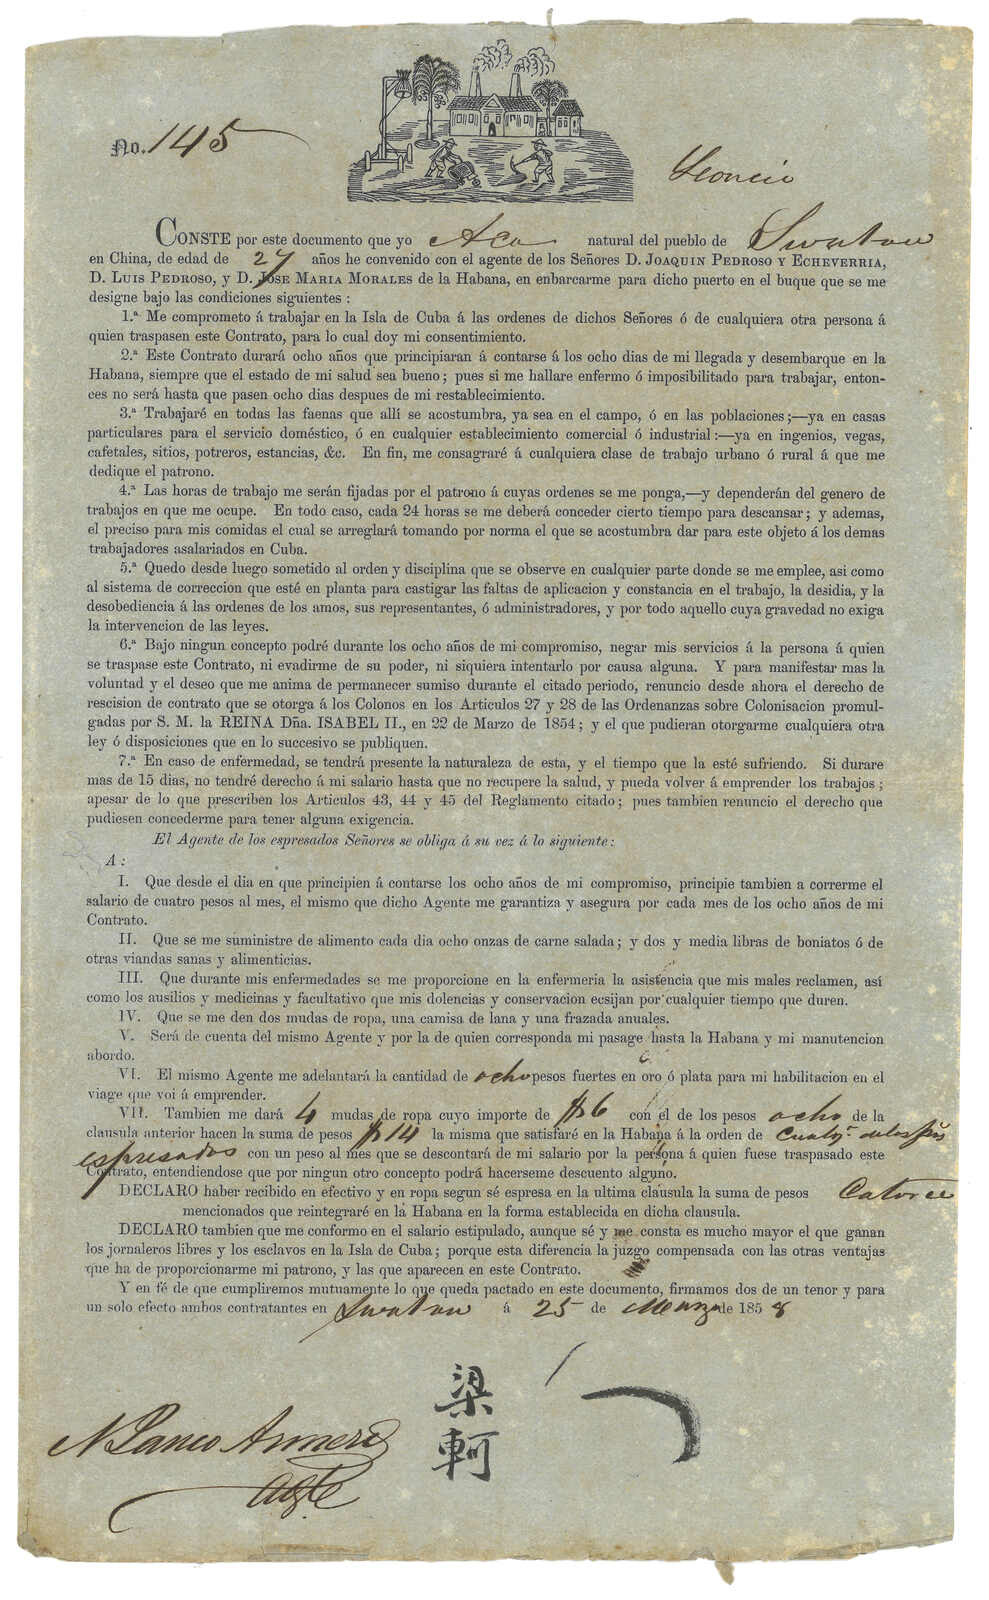 No. 145
Leoncio
CONSTE por este documento que yo Aco natural del pueblo de Swatow
en China, de edad de 27 años he convenido con el agente de los Señores D. JOAQUIN PEDROSO Y ECHEVERRIA,
D. LUIS PEDROSO, y D. JOSE MARIA MORALES de la Habana, en enbarcarme para dicho puerto en el buque que se me
designe bajo las condiciones siguientes :
1.ª Me comprometo á trabajar en la Isla de Cuba á las ordenes de dichos Señores ó de cualquiera otra persona á
quien traspasen este Contrato, para lo cual doy mi consentimiento.
2.ª Este Contrato durará ocho años que principiaran á contarse á los ocho dias de mi llegada y desembarque en la
Habana, siempre que el estado de mi salud sea bueno ; pues si me hallare enfermo ó imposibilitado para trabajar, enton-
ces no será hasta que pasen ocho dias despues de mi restablecimiento.
3.ª Trabajaré en todas las faenas que allí se acostumbra, ya sea en el campo, ó en las poblaciones ;—ya en casas
particulares para el servicio doméstico, ó en cualquier establecimiento comercial ó industrial :—ya en ingenios, vegas,
cafetales, sitios, potreros, estancias, &c. En fin, me consagraré á cualquiera clase de trabajo urbano ó rural á que me
dedique el patrono.
4.ª Las horas de trabajo me serán fijadas por el patrono á cuyas ordenes se me ponga,—y dependerán del genero de
trabajos en que me ocupe. En todo caso, cada 24 horas se me deberá conceder cierto tiempo para descansar ; y ademas,
el preciso para mis comidas el cual se arreglará tomando por norma el que se acostumbra dar para este objeto á los demas
trabajadores asalariados en Cuba.
5.ª Quedo desde luego sometido al orden y disciplina que se observe en cualquier parte donde se me emplee, asi como
al sistema de correccion que esté en planta para castigar las faltas de aplicacion y constancia en el trabajo, la desidia, y la
desobediencia á las ordenes de los amos, sus representantes, ó administradores, y por todo aquello cuya gravedad no exiga
la intervencion de las leyes.
6.ª Bajo ningun concepto podré durante los ocho años de mi compromiso, negar mis servicios á la persona á quien
se traspase este Contrato, ni evadirme de su poder, ni siquiera intentarlo por causa alguna. Y para manifestar mas la
voluntad y el deseo que me anima de permanecer sumiso durante el citado periodo, renuncio desde ahora el derecho de
rescision de contrato que se otorga á los Colonos en los Articulos 27 y 28 de las Ordenanzas sobre Colonisacion promul-
gadas por S. M. la REINA Dña. ISABEL II., en 22 de Marzo de 1854 ; y el que pudieran otorgarme cualquiera otra
ley ó disposiciones que en lo succesivo se publiquen.
7.ª En caso de enfermedad, se tendrá presente la naturaleza de esta, y el tiempo que la esté sufriendo. Si durare
mas de 15 dias, no tendré derecho á mi salario hasta que no recupere la salud, y pueda volver á emprender los trabajos ;
apesar de lo que prescriben los Articulos 43, 44 y 45 del Reglamento citado ; pues tambien renuncio el derecho que
pudiesen concederme para tener alguna exigencia.
El Agente de los espresados Señores se obliga á su vez á lo siguiente :
A :
I. Que desde el dia en que principien á contarse los ocho años de mi compromiso, principie tambien a correrme el
salario de cuatro pesos al mes, el mismo que dicho Agente me garantiza y asegura por cada mes de los ocho años de mi
Contrato.
II. Que se me suministre de alimento cada dia ocho onzas de carne salada ; y dos y media libras de boniatos ó de
otras viandas sanas y alimenticias.
III. Que durante mis enfermedades se me proporcione en la enfermeria la asistencia que mis males reclamen, así
como los ausilios y medicinas y facultativo que mis dolencias y conservacion ecsijan por cualquier tiempo que duren.
IV. Que se me den dos mudas de ropa, una camisa de lana y una frazada anuales.
V. Será de cuenta del mismo Agente y por la de quien corresponda mi pasage hasta la Habana y mi manutencion
abordo.
VI. El mismo Agente me adelantará la cantidad de ocho pesos fuertes en oro ó plata para mi habilitacion en el
viage que voi á emprender.
VII. Tambien me dará 4 mudas de ropa cuyo importe de $6 con el de los pesos ocho de la
clausula anterior hacen la suma de pesos $14 la misma que satisfaré en la Habana á la orden de
espresados con un peso al mes que se descontará de mi salario por la persona á quien fuese traspasado este
Contrato, entendiendose que por ningun otro concepto podrá hacerseme descuento alguno.
DECLARO haber recibido en efectivo y en ropa segun sé espresa en la ultima clausula la suma de pesos Catorce
mencionados que reintegraré en la Habana en la forma establecida en dicha clausula.
DECLARO tambien que me conformo en el salario estipulado, aunque sé y me consta es mucho mayor el que ganan
los jornaleros libres y los esclavos en la Isla de Cuba ; porque esta diferencia la juzgo compensada con las otras ventajas
que ha de proporcionarme mi patrono, y las que aparecen en este Contrato.
Y en fé de que cumpliremos mutuamente lo que queda pactado en este documento, firmamos dos de un tenor y para
un solo efecto ambos contratantes en Swatow á 25 de Marzo de 1858
梁
軻